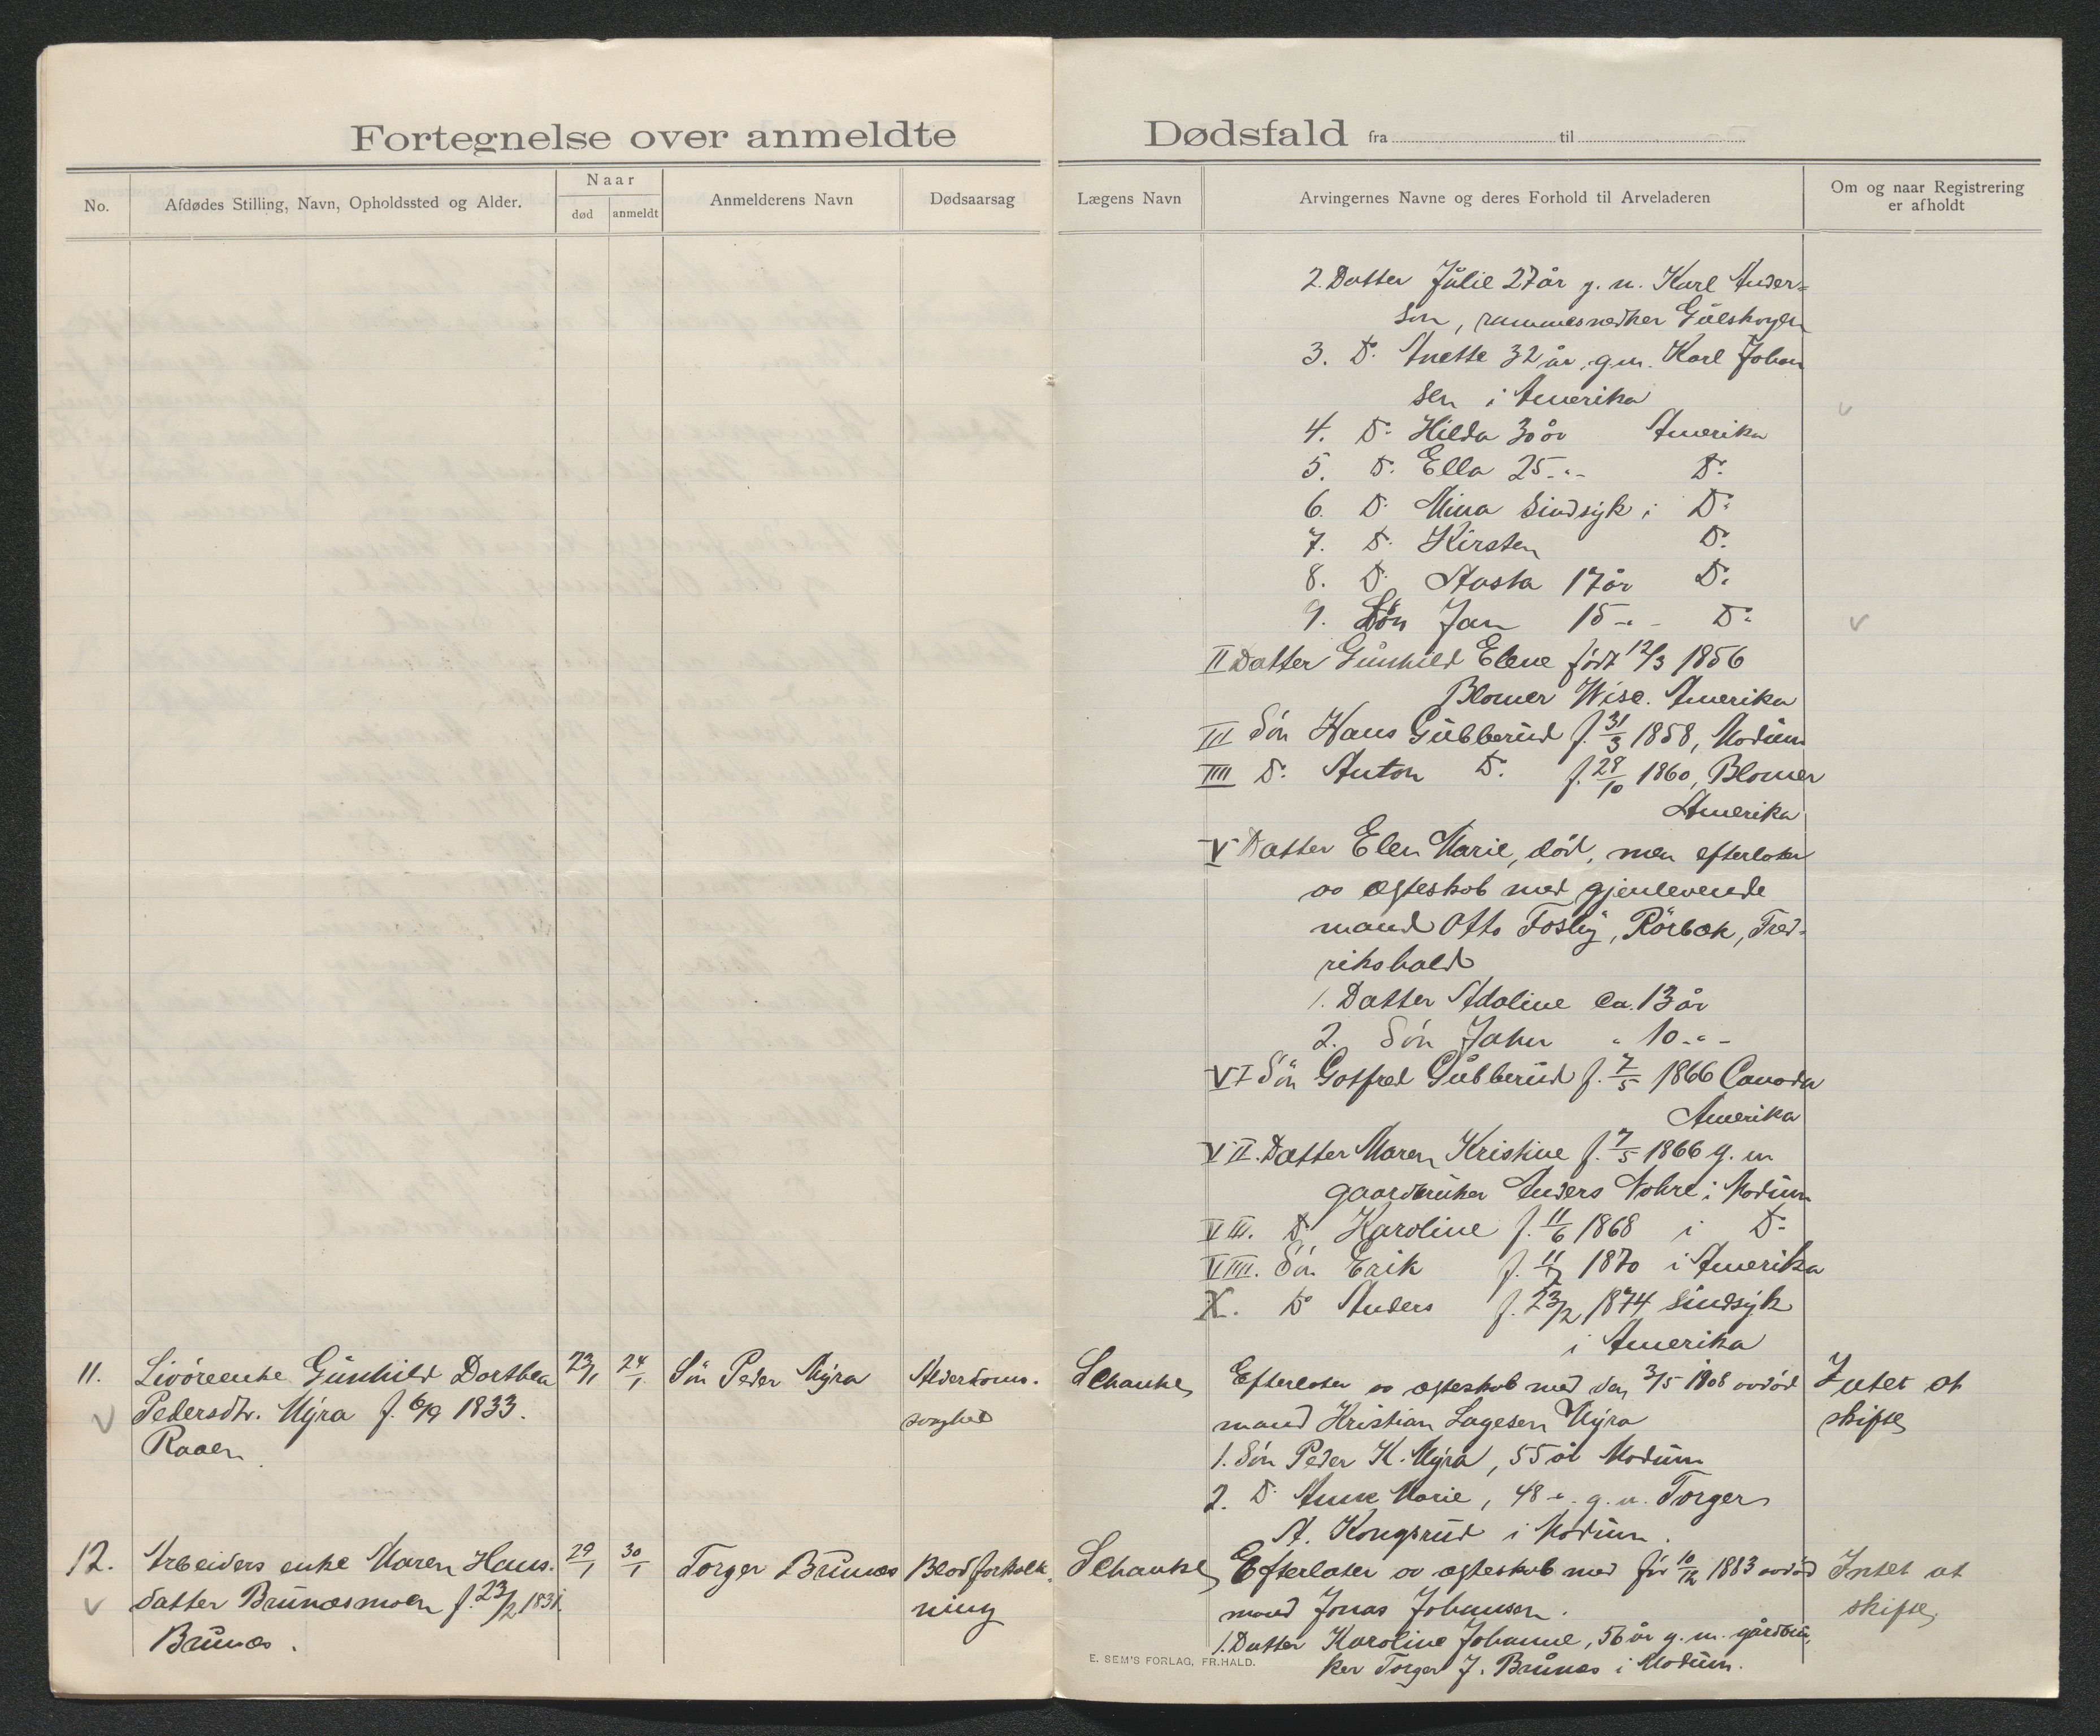 Fortegnelse over anmeldte Dødsfald fra til
No.
Afdødes Stilling, Navn, Opholdssted og Alder.
Naar
død
anmeldt
Anmelderens Navn
Dødsaarsag
Lægens Navn
Arvingernes Navne og deres Forhold til Arveladeren
Om og naar Registrering
er afholdt
2. Datter Julie 27 år g. m. Karl Ander=
sen, rammesnedker Gulskogen
3. Do. Anette 32 år, g.m. Karl Johan
sen i Amerika
4. Do. Hilda 30 år Amerika
5. Do. Ella 25 -"- Do.
6. Do. Mina Sindsyk i Do.
7. Do. Kirsten Do.
8. Do. Aasta 17 år Do.
9. Søn Jan 15 -"- Do.
II Datter Gunhild Elene født 12/3 1856
Blomer Wisc. Amerika
III Søn Hans Gubberud f. 31/3 1858, Modum
IIII Do. Anton Do. f. 28/10 1860, Blomer
Amerika
V Datter Elen Marie, død, men efterlater
av ægteskab med gjenlevende
mand Otto Fosby, Rörbæk, Fred-
rikshald
1. Datter Adaline ca. 13 år
2. Søn Jahn " 10 -"-
VI Søn Gotfred Gubberud f. 7/5 1866 Canada
Amerika
VII. Datter Maren Kristine f. 7/5 1866 g. m
gaardbruker Anders Nokre i Modum
VIII. Do. Karoline f. 11/6 1868 i Do.
VIIII. Søn Erik f. 11/7 1870 i Amerika
X. Do Anders f. 23/2 1874 Sindsyk
i Amerika
11. Livøreenke Gunhild Dorthea
Pedersdtr. Myra f. 6/9 1833.
Raaen
23/1
24/1
Søn Peder Myra
Alderdoms-
svaghed
Schanke
Efterlater av ægteskab med den 3/5 1908 avdød
mand Kristian Lagesen Myra
1. Søn Peder K. Myra, 55 år Modum
2. Do. Anne Marie, 48 -"- g. m. Torger
A. Kongsrud i Modum.
Intet at
skifte
12. Arbeiders enke Maren Hans-
datter Brunæsmoen f. 23/2 1831.
Brunæs.
29/1
30/1
Torger Brunæs
Blodforkalk-
ning
Schanke
Efterlater av ægteskab med før 10/12 1883 avdød
mand Jonas Johansen.
1. Datter Karoline Johanne, 56 år g. m. gårdbru-
ker Torger J. Brunæs i Modum.
Intet at
skifte
E. SEM'S FORLAG, FR.HALD.